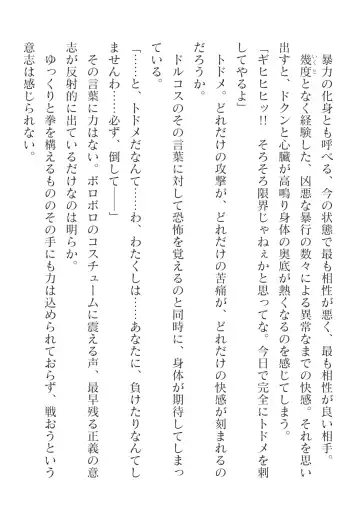 暴力の化身とも呼べる、今の状態で最も相性が悪く、最も相性が良い相手。
幾度となく経験した、凶悪な暴行の数々による異常なまでの快感。それを思い
出すと、ドクンと心臓が高鳴り身体の奥底が熱くなるのを感じてしまう。
「ギヒヒヒッ!!　そろそろ限界じゃねぇかと思ってな。今日で完全にトドメを刺
してやるよ」
トドメ。どれだけの攻撃が、どれだけの苦痛が、どれだけの快感が刻まれるの
だろうか。
ドルコスのその言葉に対して恐怖を覚えるのと同時に、身体が期待してしまっ
ている。
「……と、トドメだなんて……わ、わたくしは……あなたに、負けたりなんてし
ませんわ……必ず、倒して――」
その言葉に力はない。ボロボロのコスチュームに震える声、最早残る正義の意
志が反射的に出ているだけなのは明らか。
ゆっくりと拳を構えるもののその手にも力は込められておらず、戦おうという
意志は感じられない。